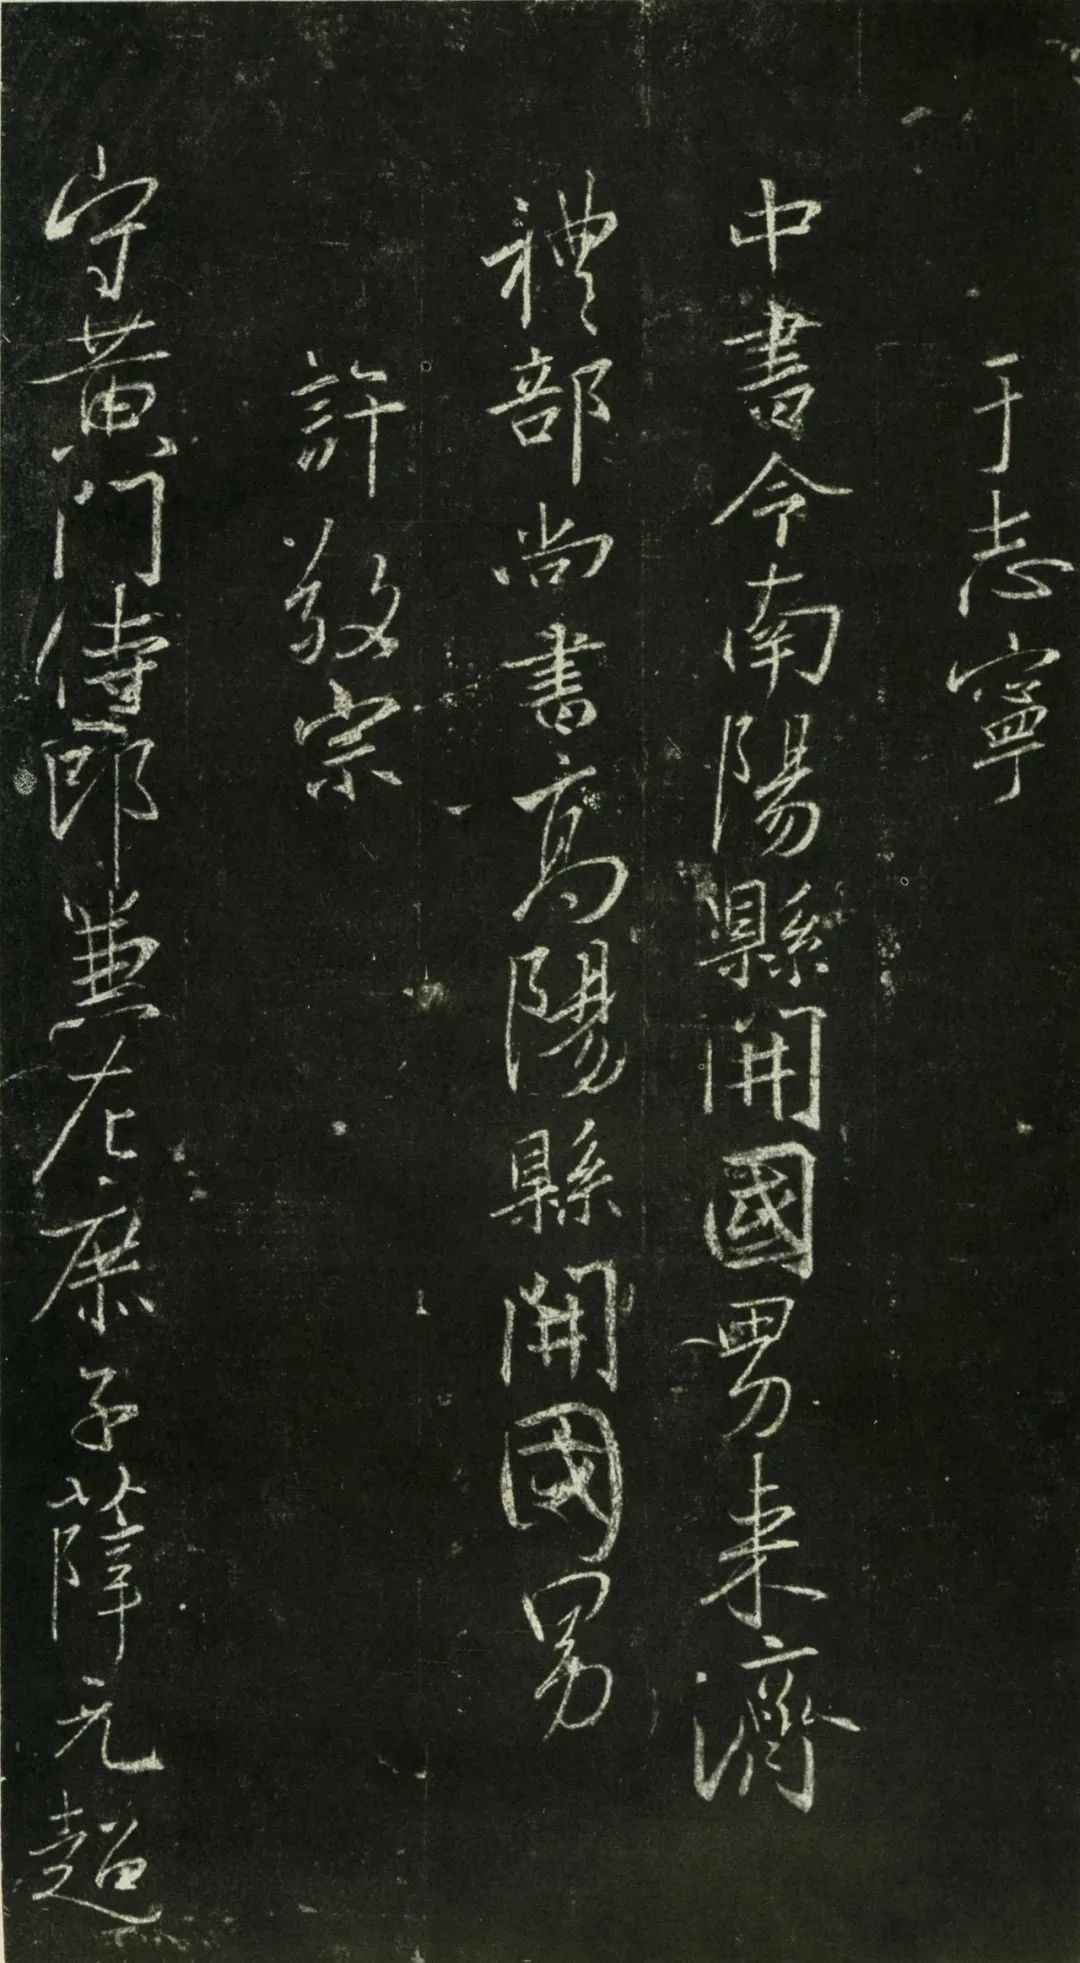 于志寧
中書令南陽縣開國男来濟
禮部尚書高陽縣開國男
許敬宗
守黄門侍郎兼左庶子薛元超